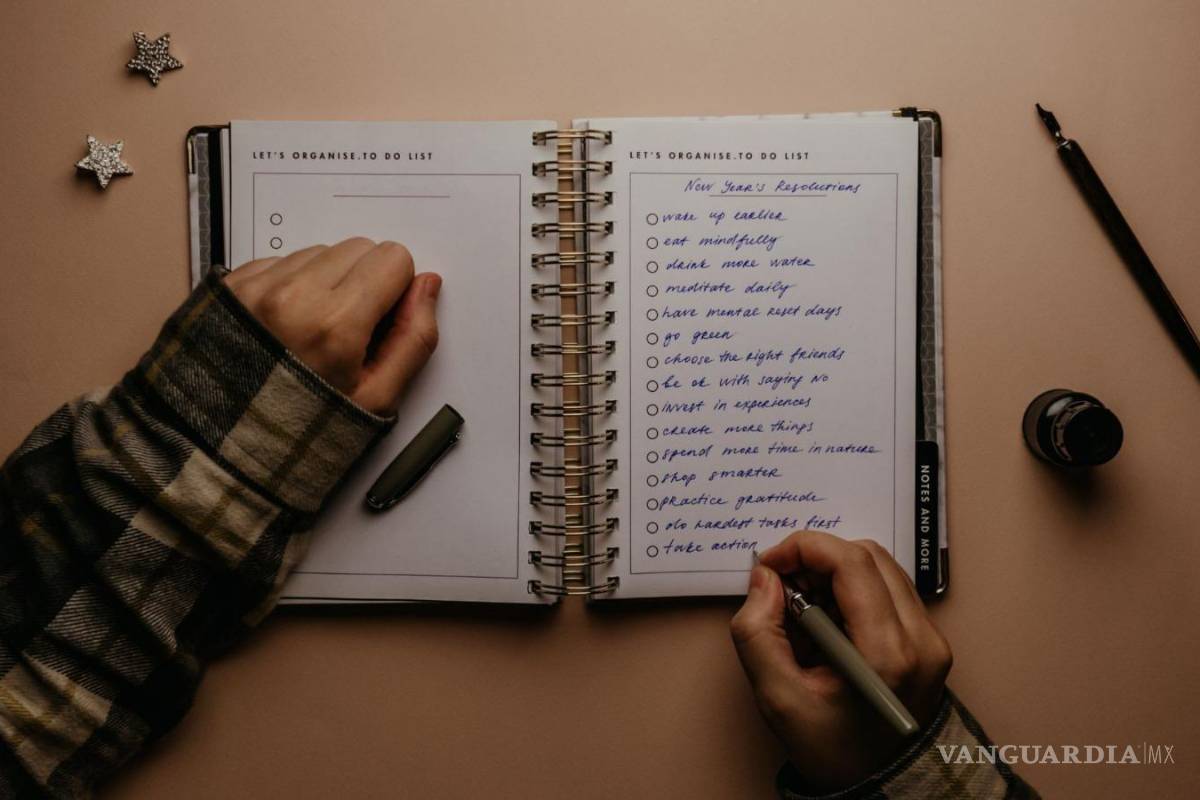 LET'S ORGANISE.TO DO LIST
LET'S ORGANISE.TO DO LIST
New Year's Resolutions
wake up earlier
eat mindfully
drink more water
meditate daily
have mental reset days
go green
choose the right friends
be ok with saying no
invest in experiences
create more things
spend more time in nature
shop smarter
practice gratitude
do hardest tasks first
take action
NOTES AND MORE
VANGUARDIA|MX